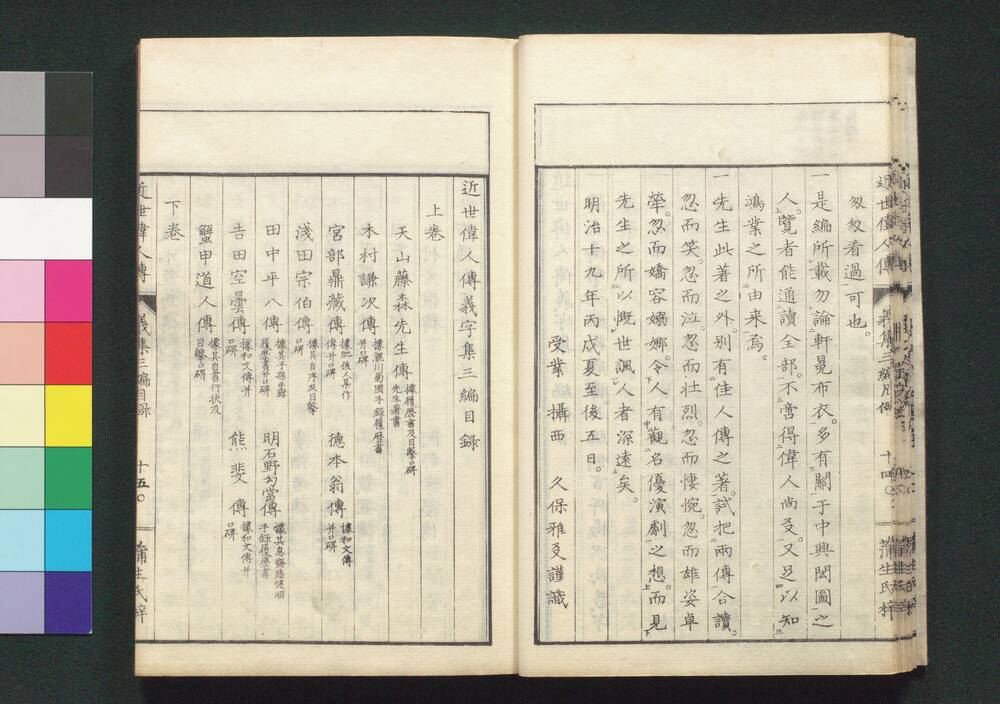 匆匆看過可也。
一是編所載勿論軒冕布衣。多有關于中興閫國之
人。覽者能通讀全部。不啻得偉人尚友。又足以知
鴻業之所由来焉。
一先生此著之外。別有佳人傳之著。試把兩傳合讀。
忽而笑。忽而泣。忽而壮烈。忽而悽惋。忽而雄姿卓
犖。忽而嬌容嫋娜。令人有觀名優演劇之想。而見
先生之所以慨世諷人者深遠矣。
明治十九年丙戌夏至後五日。
受業 攝西 久保雅友謹識
近世偉人傳義字集三編目録
上卷
天山藤森先生傳 據履歴書及目擊口碑 先生著書
木村謙次傳 據瀧川菊圃手錄履歴書 并口碑
宮部鼎藏傳 據肥後人某作 傳并口碑
德本翁傳 據和文傳 并口碑
淺田宗伯傳 據其自序及目擊 口碑
田中平八傳 據其子孫手錄 履歴書并口碑
明石野為當傳 據其息齋藤健順 手錄履歴書
吉田空曇傳 據和文傳并 口碑
熊斐傳 據和文傳并 口碑
蟹甲道人傳 據其自書行状及 目擊口碑
下卷
近世偉人傳 義集三編目録 十五 蒲生氏梓